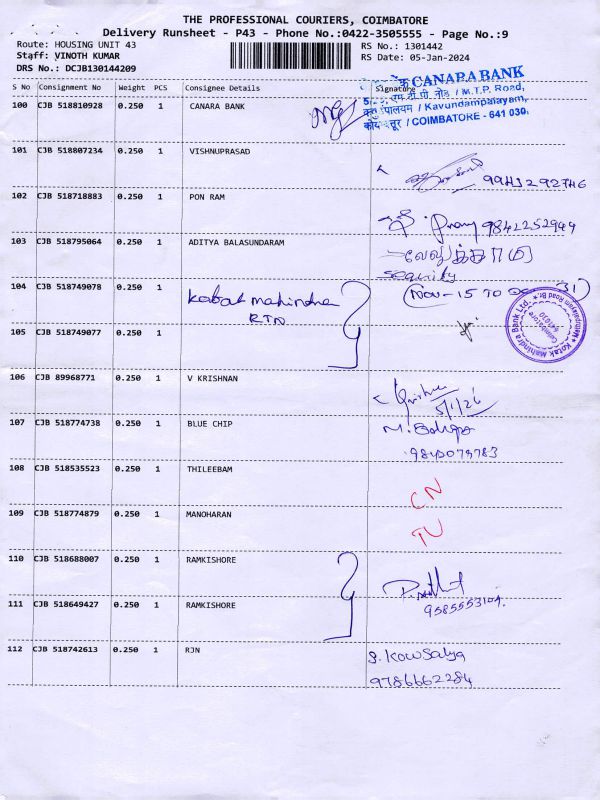 THE PROFESSIONAL COURIERS, COIMBATORE
Delivery Runsheet - P43 - Phone No.:0422-3505555 - Page No.:9
Route: HOUSING UNIT 43
Staff: VINOTH KUMAR
DRS No.: DCJB130144209
RS No.: 1301442
RS Date: 05-Jan-2024
S No Consignment No Weight PCS Consignee Details Signature
CANARA BANK
/ M.T.P. Road,
/ Kavundampalayam,
/ COIMBATORE - 641 030.
100 CJB 518810928 0.250 1 CANARA BANK
101 CJB 518807234 0.250 1 VISHNUPRASAD
9943292746
102 CJB 518718883 0.250 1 PON RAM
9842252949
103 CJB 518795064 0.250 1 ADITYA BALASUNDARAM
security
104 CJB 518749078 0.250 1 kotak mahindra
RTN
(Nov-15 TO Dec 31)
Kotak Mahindra Bank Ltd.
Coimbatore
641030
105 CJB 518749077 0.250 1
106 CJB 89968771 0.250 1 V KRISHNAN
Krishna
5/1/26
107 CJB 518774738 0.250 1 BLUE CHIP
9840079783
108 CJB 518535523 0.250 1 THILEEBAM
CN
109 CJB 518774879 0.250 1 MANOHARAN
TV
110 CJB 518688007 0.250 1 RAMKISHORE
9585553104.
111 CJB 518649427 0.250 1 RAMKISHORE
112 CJB 518742613 0.250 1 RJN
S. Kowsalya
9786662284